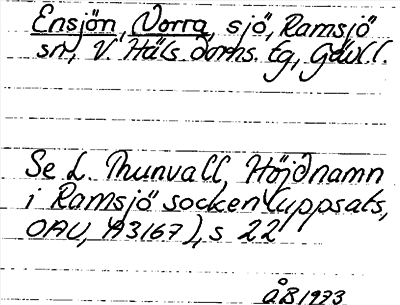 Ensjön, Norra, sjö, Ramsjö
sn, V. Häls. doms. tg, Gävl.
Se L. Thunvall, Höjdnamn
i Ramsjö socken (uppsats,
OAU, A3167), s 22
ÅB 1973